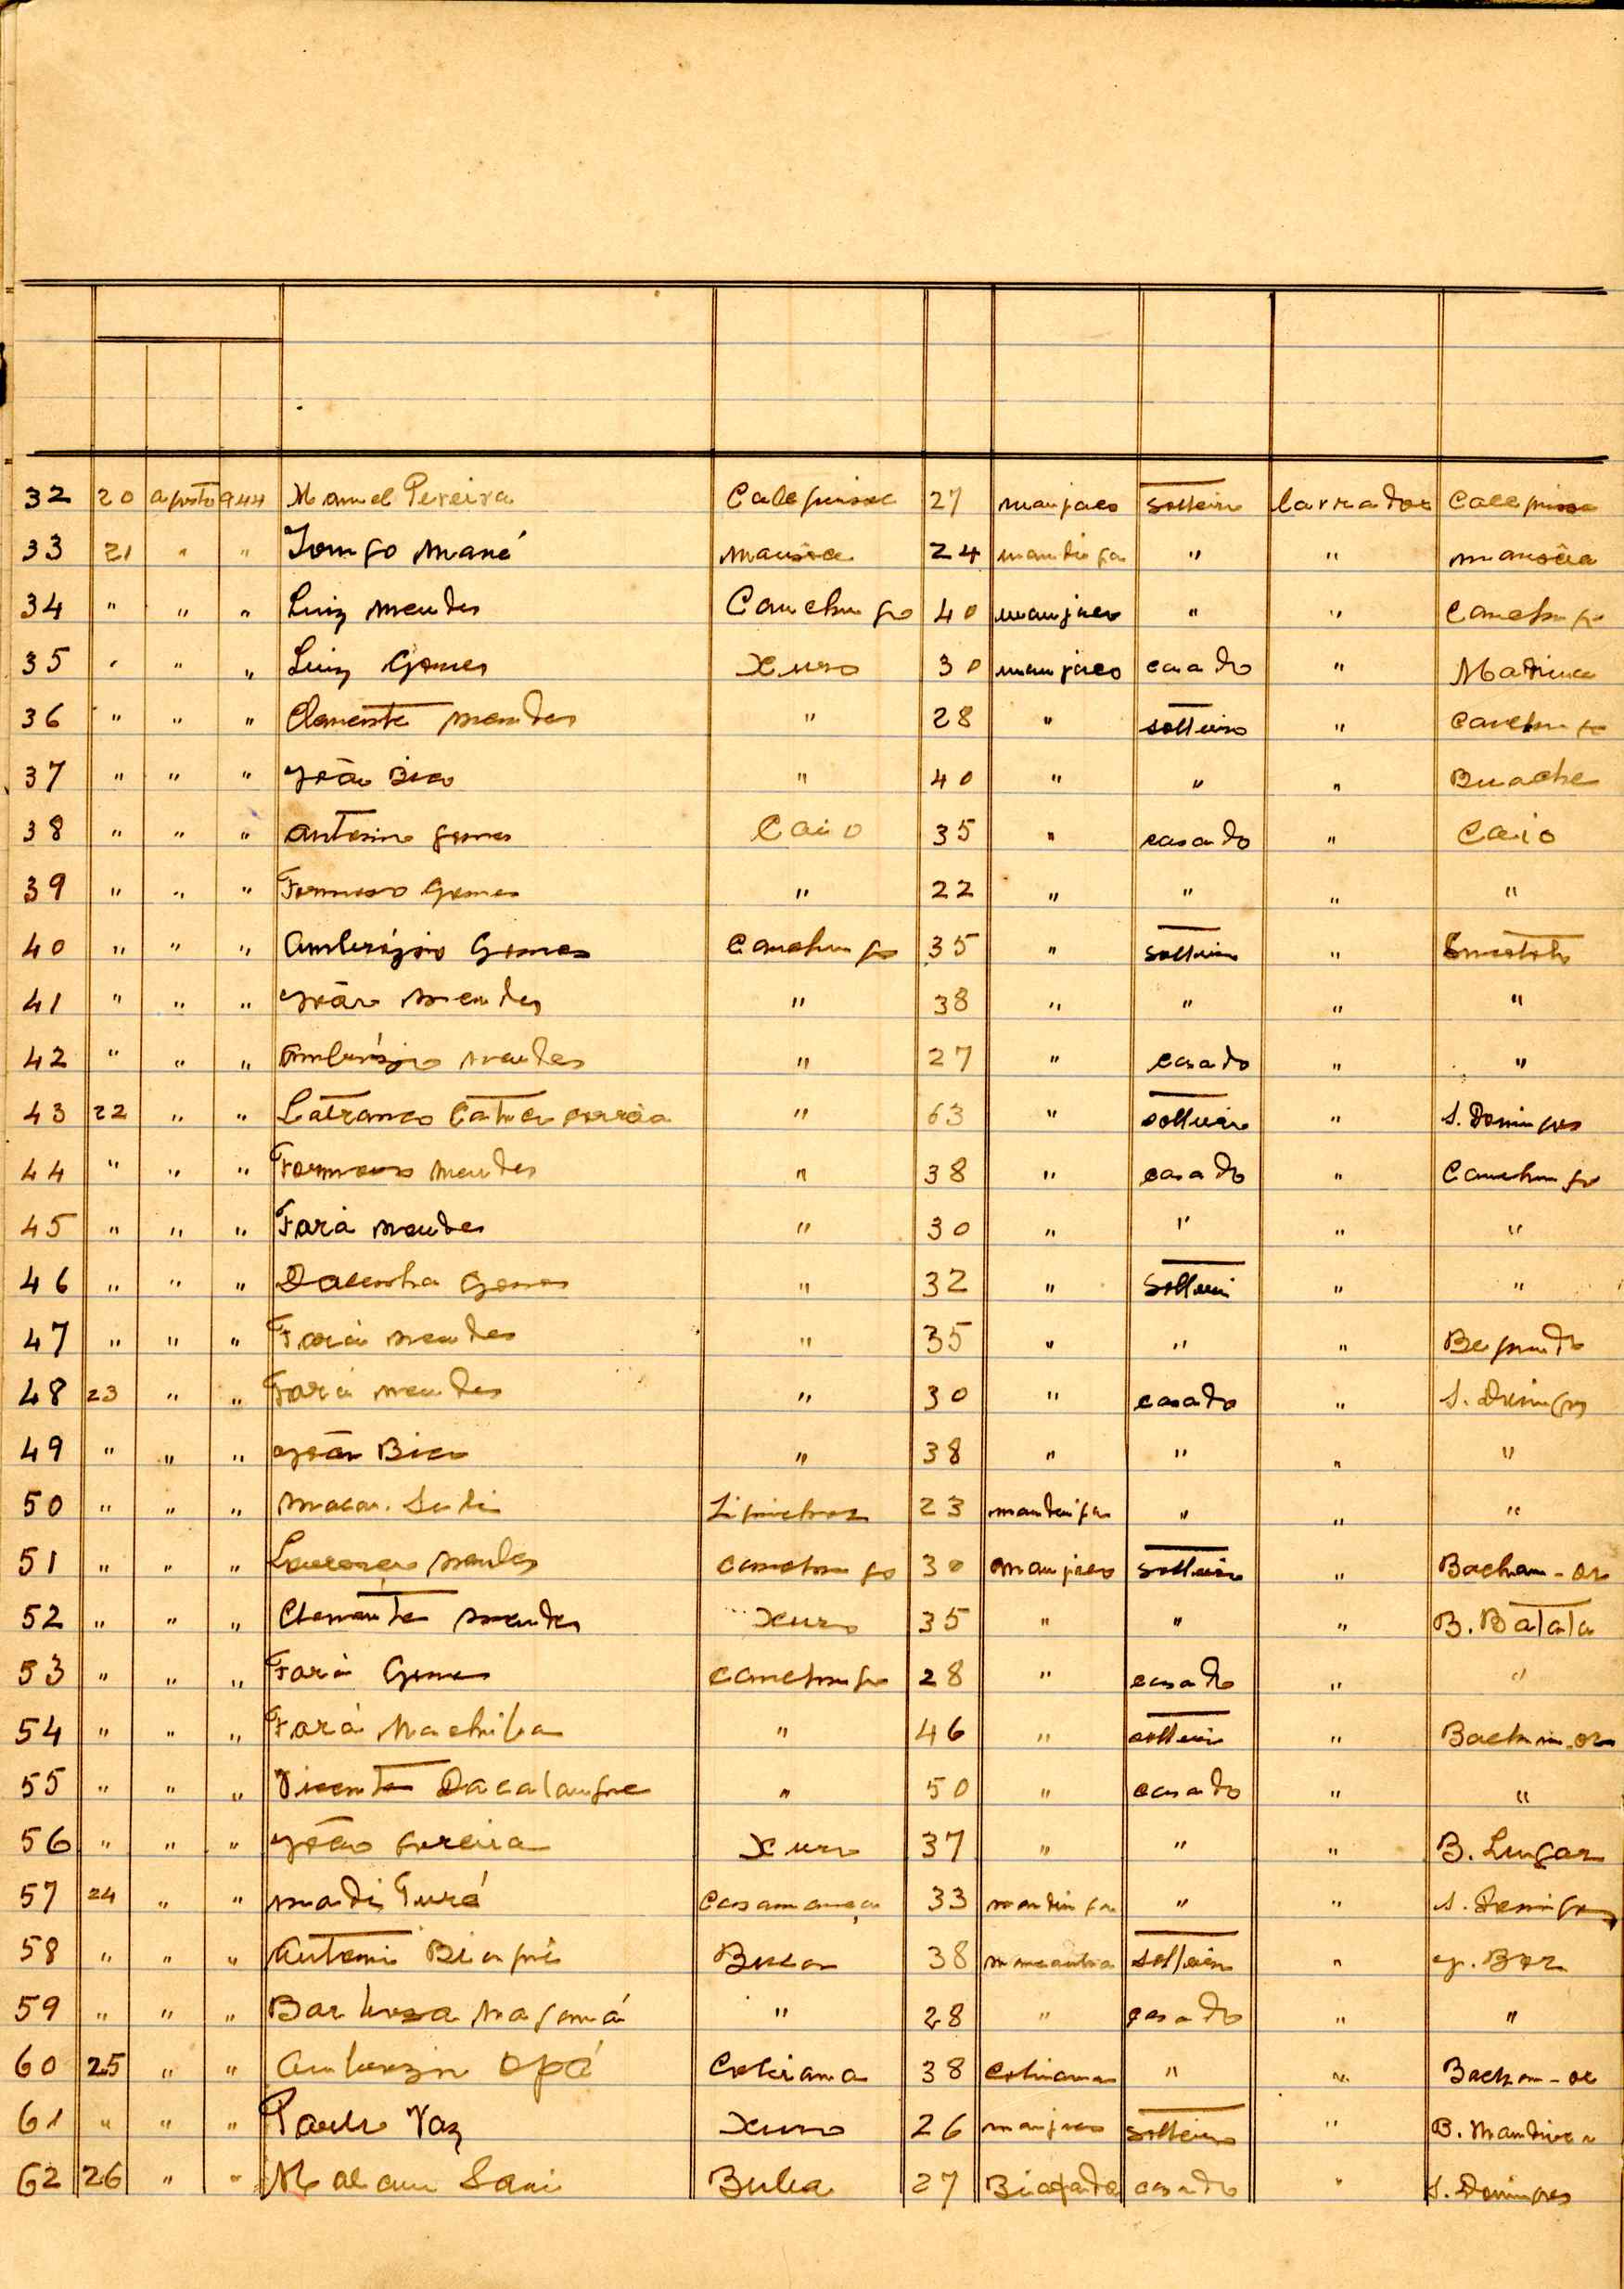 32 20 agosto 944 Manuel Pereira Calequisse 27 manjaco solteiro lavrador Calequisse
33 21 " " Tomgo Mané mansôa 24 mandiga " " mansôa
34 " " " Luiz Mendes Canchungo 40 manjaco " " Canchungo
35 " " " Luiz Gomes Xuro 30 manjaco casado " Madina
36 " " " Clemente Mendes " 28 " solteiro " Canchungo
37 " " " João Bico " 40 " " " Buache
38 " " " Antonio Gomes Caio 35 " casado " Caio
39 " " " Formoso Gomes " 22 " " " "
40 " " " Ambrózio Gomes Canchungo 35 " solteiro "
41 " " " João Mendes " 38 " " " "
42 " " " Ambrózio Mendes " 27 " casado " "
43 22 " " " 63 " solteiro " S. Domingos
44 " " " Formoso Mendes " 38 " casado " Canchungo
45 " " " Fará Mendes " 30 " " " "
46 " " " Gomes " 32 " solteiro " "
47 " " " Fará Mendes " 35 " " "
48 23 " " Fará Mendes " 30 " casado " S. Domingos
49 " " " João Bico " 38 " " " "
50 " " " 23 mandinga " " "
51 " " " Lourenço Mendes Canchungo 30 manjaco solteiro "
52 " " " Clemente Mendes Xuro 35 " " " B. Batata
53 " " " Fará Gomes Canchungo 28 " casado " "
54 " " " Fará Nachiba " 46 " solteiro "
55 " " " Vicente Dacalangue " 50 " casado " "
56 " " " João Pereira Xuro 37 " " " B. Lugar
57 24 " " madi Turé Casamança 33 mandinga " " S. Domingos
58 " " " Antonio 38 solteiro "
59 " " " Barbosa " 28 " casado " "
60 25 " " Ambrozio Opá Cobiana 38 Cobiana " "
61 " " " Paulo Vaz Xuro 26 manjaco solteiro "
62 26 " " Malam Sani Buba 27 Biafada casado " S. Domingos